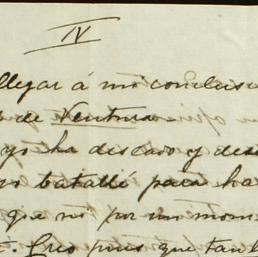 IV
llegar á mis conclusi
de Ventura
yo ha deseado y des
yo batallé para ha
que no por un mom
Creo pues que tan